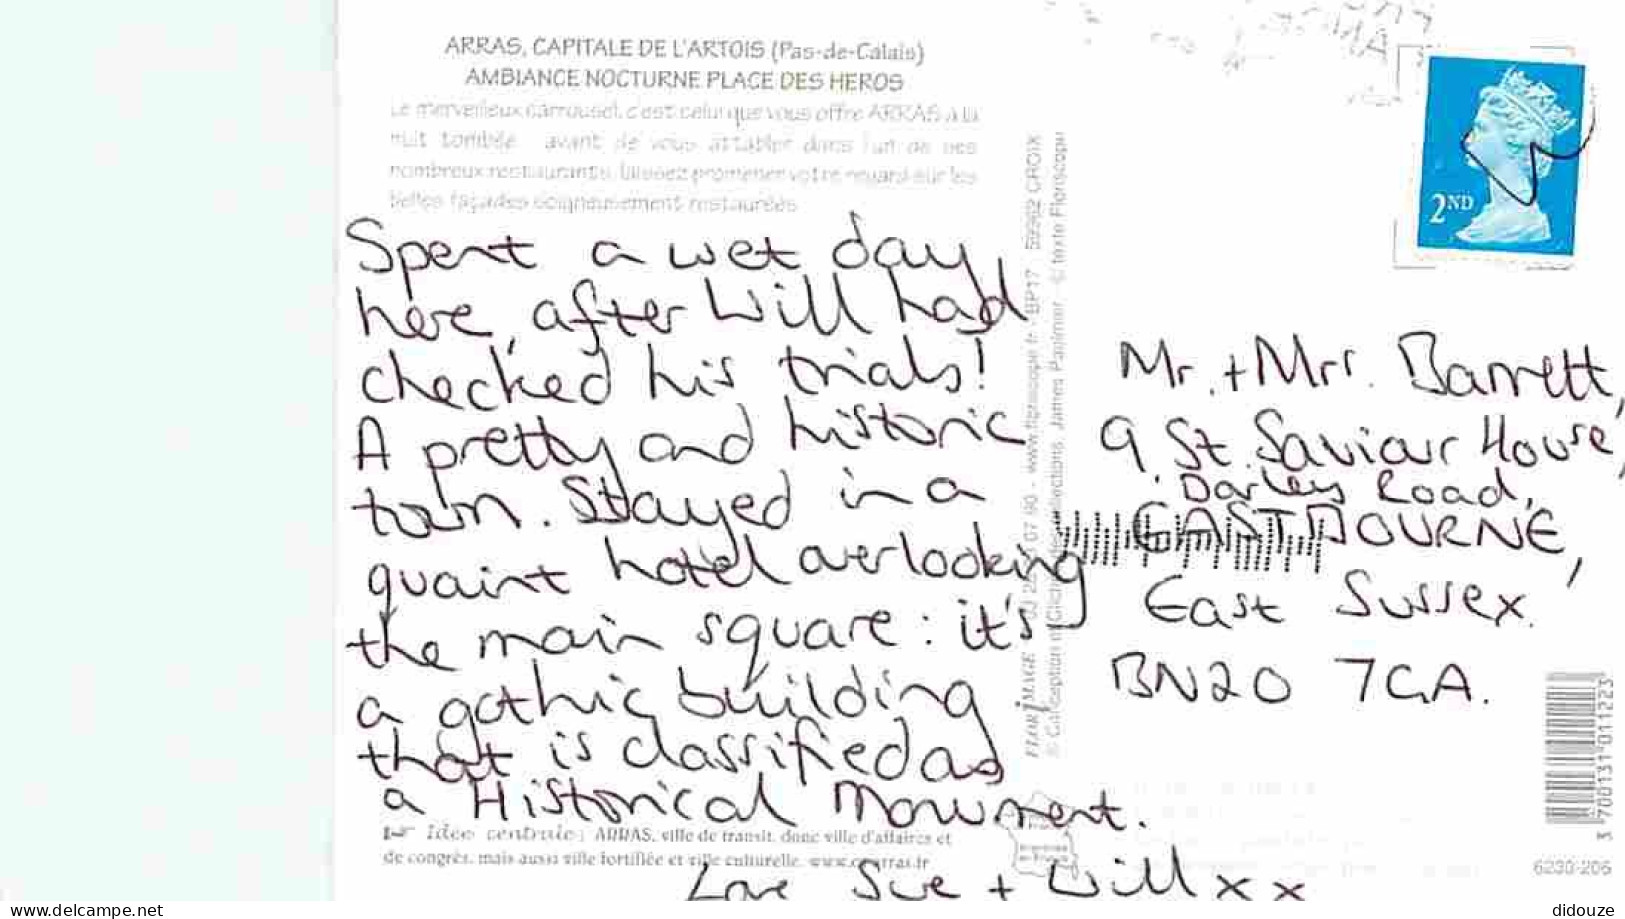 ARRAS, CAPITALE DE L'ARTOIS (Pas-de-Calais)
AMBIANCE NOCTURNE PLACE DES HEROS
Le merveilleux carrousel, c'est celui que vous offre ARRAS à la
nuit tombée avant de vous attabler dans l'un de ses
nombreux restaurants, laissez promener votre regard sur les
belles façades soigneusement restaurées
Spent a wet day
here, after Will had
checked his trials!
A pretty and historic
town. Stayed in a
quaint hotel overlooking
the main square: it's
a gothic building
that is classified as
a Historical Monument.
Love Sue + Will x x
Idée centrale : ARRAS, ville de transit, donc ville d'affaires et
de congrès, mais aussi ville fortifiée et ville culturelle.
FLOR'IMAGE 07 60 - www.floriscope.fr - BP17 59962 CROIX
© Conception James Paolmier © texte Floriscope
2ND
Mr. + Mrs. Barrett,
9 St. Saviour House,
Darley Road,
EASTBOURNE,
East Sussex.
BN20 7GA.
3 700131 011223
6230-206
www.delcampe.net
didouze